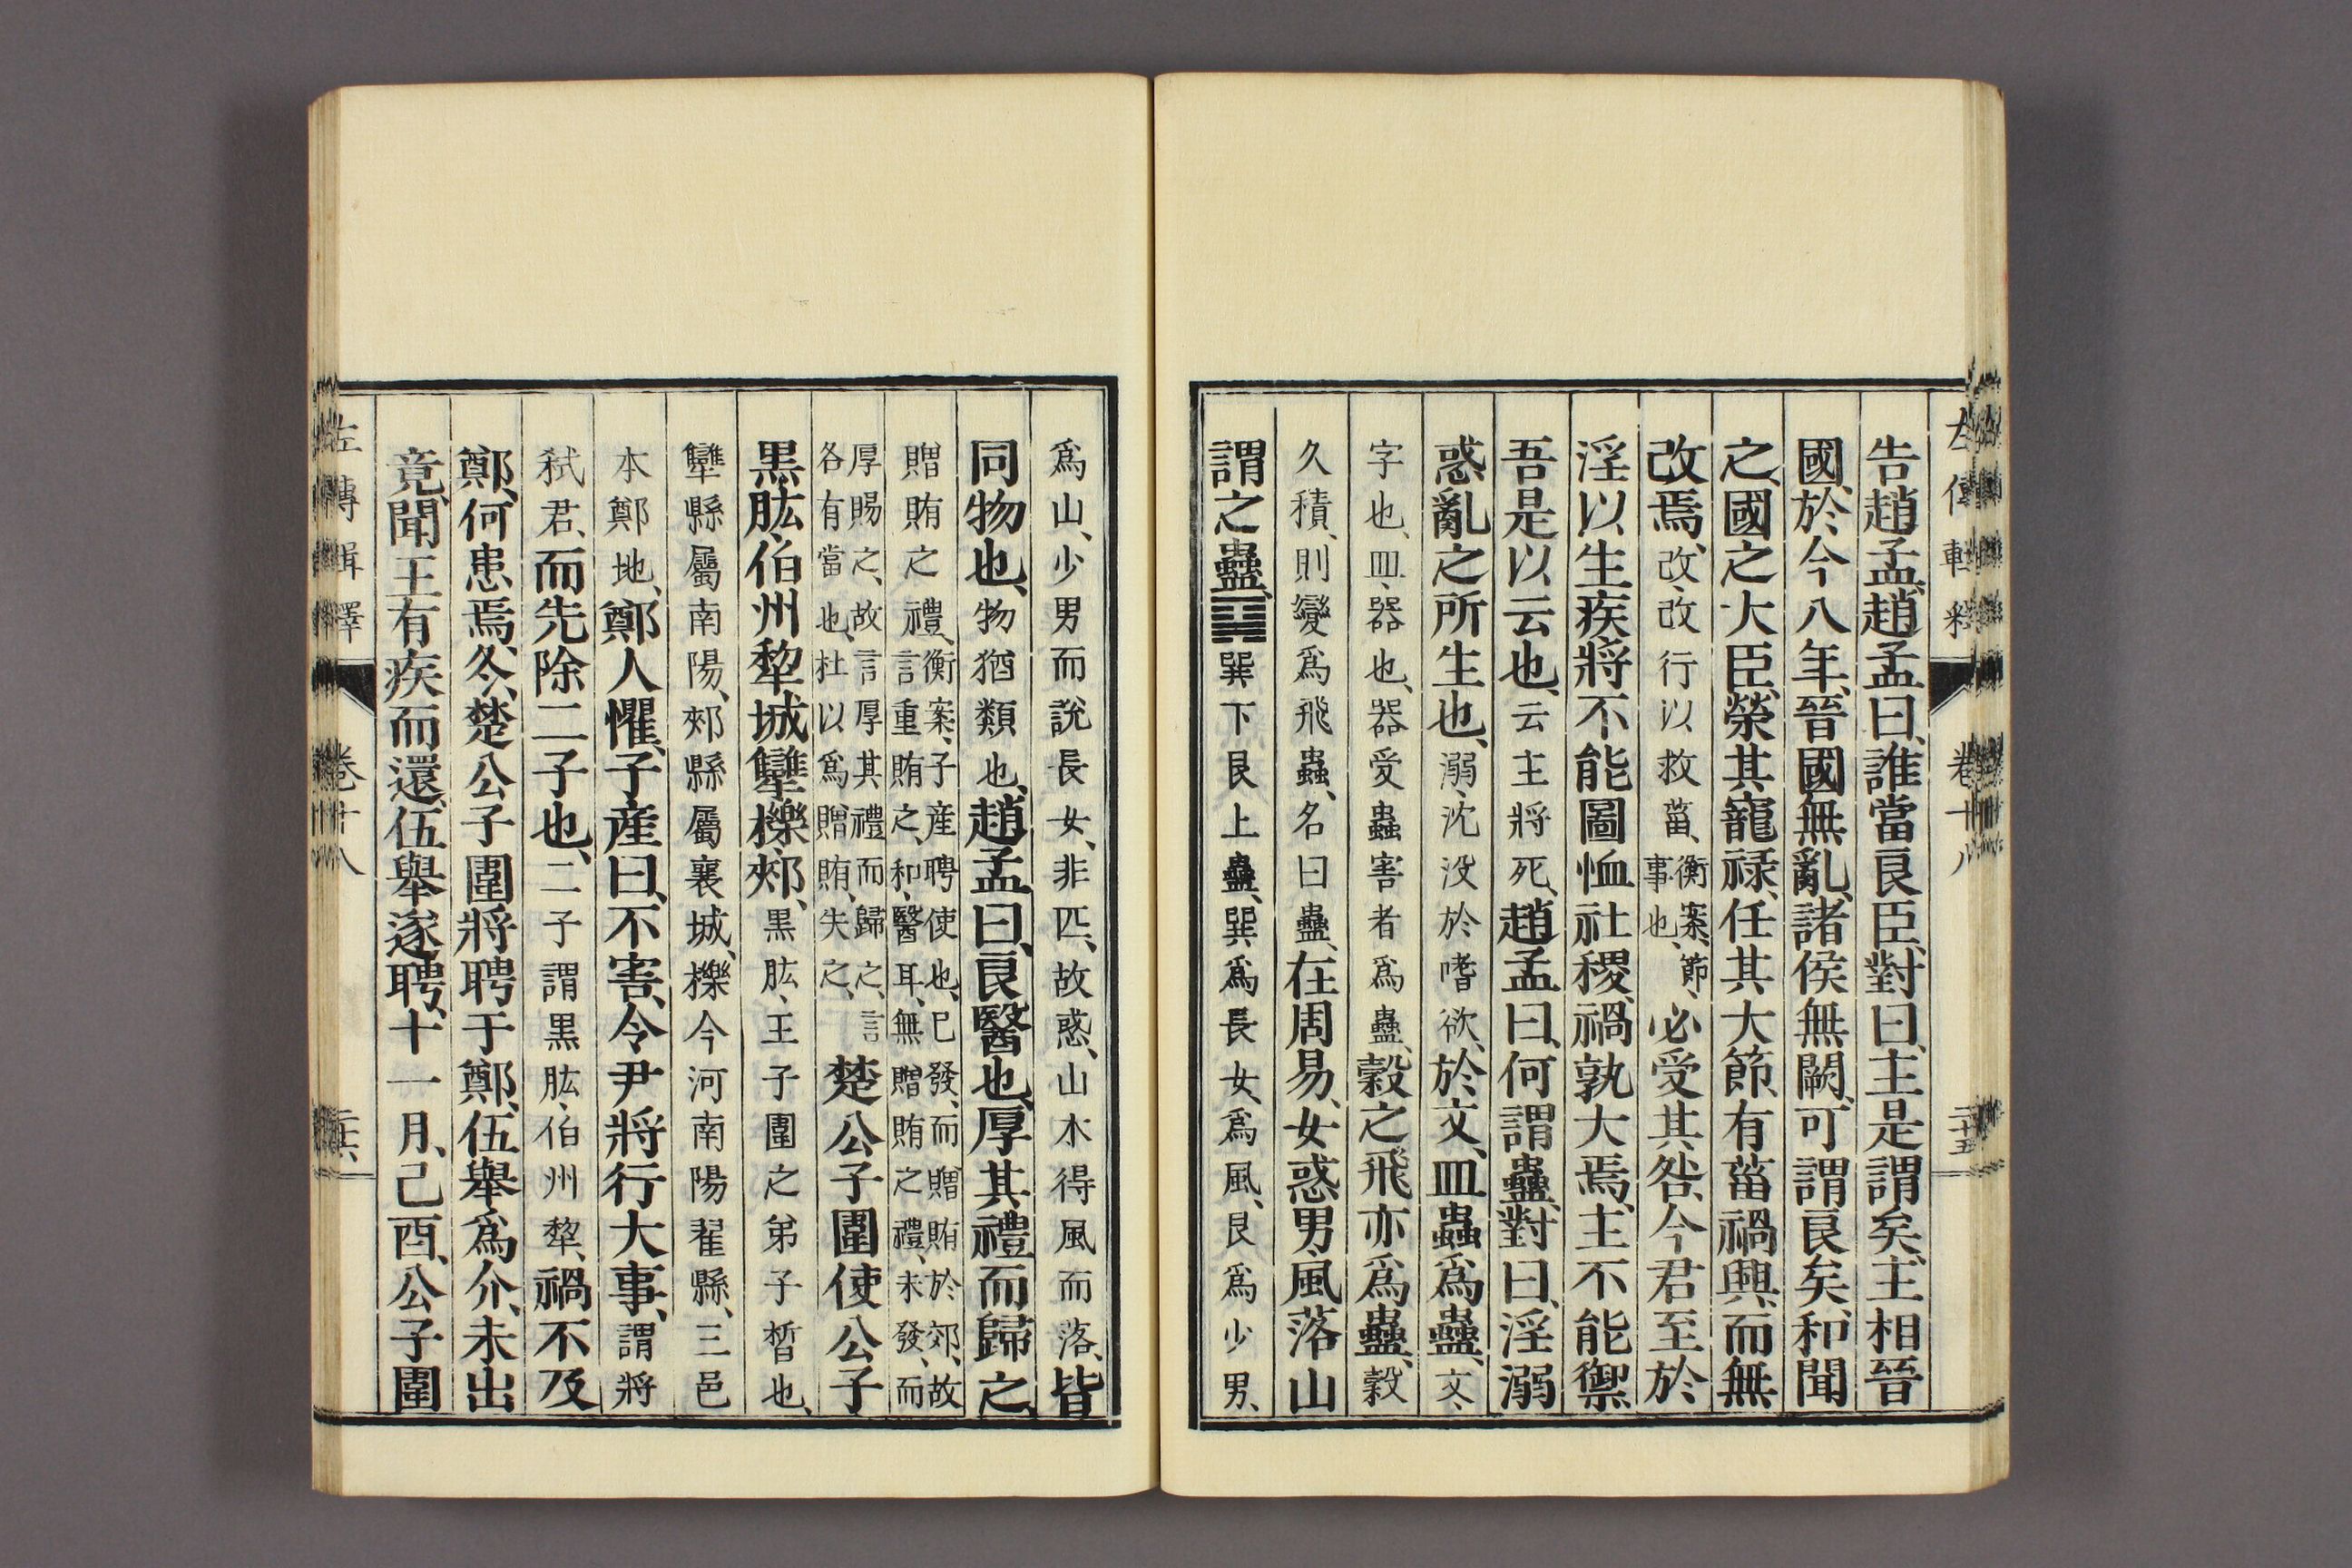 告趙孟、趙孟曰、誰當良臣、對曰、主是謂矣、主相晉
國、於今八年、晉國無亂、諸侯無闕、可謂良矣、和聞
之、國之大臣、榮其寵祿、任其大節、有菑禍興、而無
改焉、改、改行以救菑、衡案、節、事也、必受其咎、今君至於
淫以生疾、將不能圖恤社稷、禍孰大焉、主不能禦
吾是以云也、云主將死、趙孟曰、何謂蠱、對曰、淫溺
惑亂之所生也、溺、沈没於嗜欲、於文、皿蟲爲蠱、文、
字也、皿、器也、器受蟲害者爲蠱、穀之飛亦爲蠱、穀
久積、則變爲飛蟲、名曰蠱、在周易、女惑男、風落山
謂之蠱、䷑巽下艮上蠱、巽爲長女、爲風、艮爲少男、
爲山、少男而說長女、非匹、故惑、山木得風而落、皆
同物也、物猶類也、趙孟曰、良醫也、厚其禮而歸之、
贈賄之禮、衡案、子産聘使也、已發、而贈賄於郊、故言重賄之、和、醫耳、無贈賄之禮、未發、而
厚賜之、故言厚其禮而歸之、言各有當也、杜以爲贈賄、失之、楚公子圍使公子
黒肱、伯州犂城犫、櫟、郟、黒肱、王子圍之弟子晳也、
犫縣屬南陽、郟縣屬襄城、櫟今河南陽翟縣、三邑
本鄭地、鄭人懼、子産曰、不害、令尹將行大事、謂將
弑君、而先除二子也、二子謂黒肱、伯州犂、禍不及
鄭、何患焉、冬、楚公子圍將聘于鄭、伍舉爲介、未出
竟、聞王有疾而還、伍舉遂聘、十一月、己酉、公子圍
左傳輯釋　卷十八